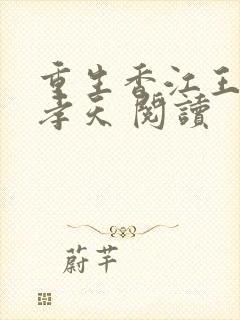 重生香江王
孝天 閱讀
蔚芊